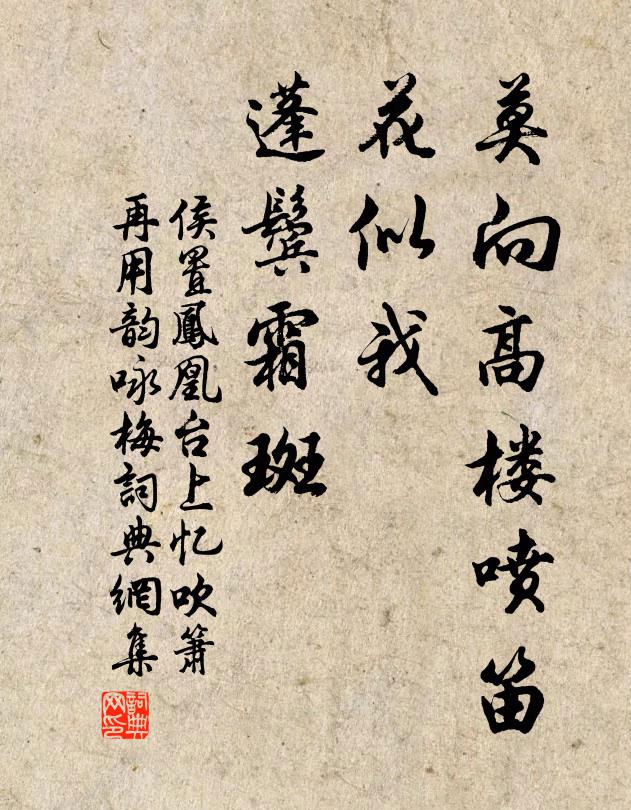 莫向高楼喷笛
花似我
蓬鬓霜斑
侯置鳳凰台上忆吹簫
再用韵咏梅詞典網集
詞典网印